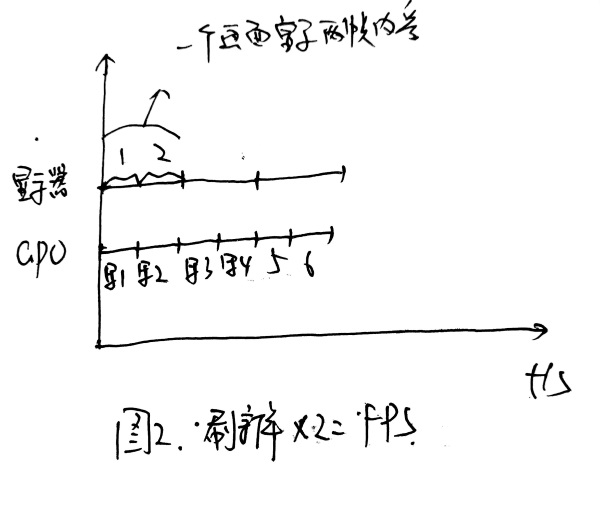 一个画面显示两帧内容
1 2
显示器
GPU
帧1 帧2 帧3 帧4 5 6
t/s
图2. 刷新率×2=FPS